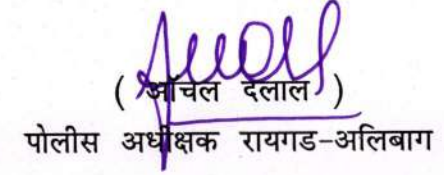 ( आँचल दलाल )
पोलीस अधीक्षक रायगड-अलिबाग